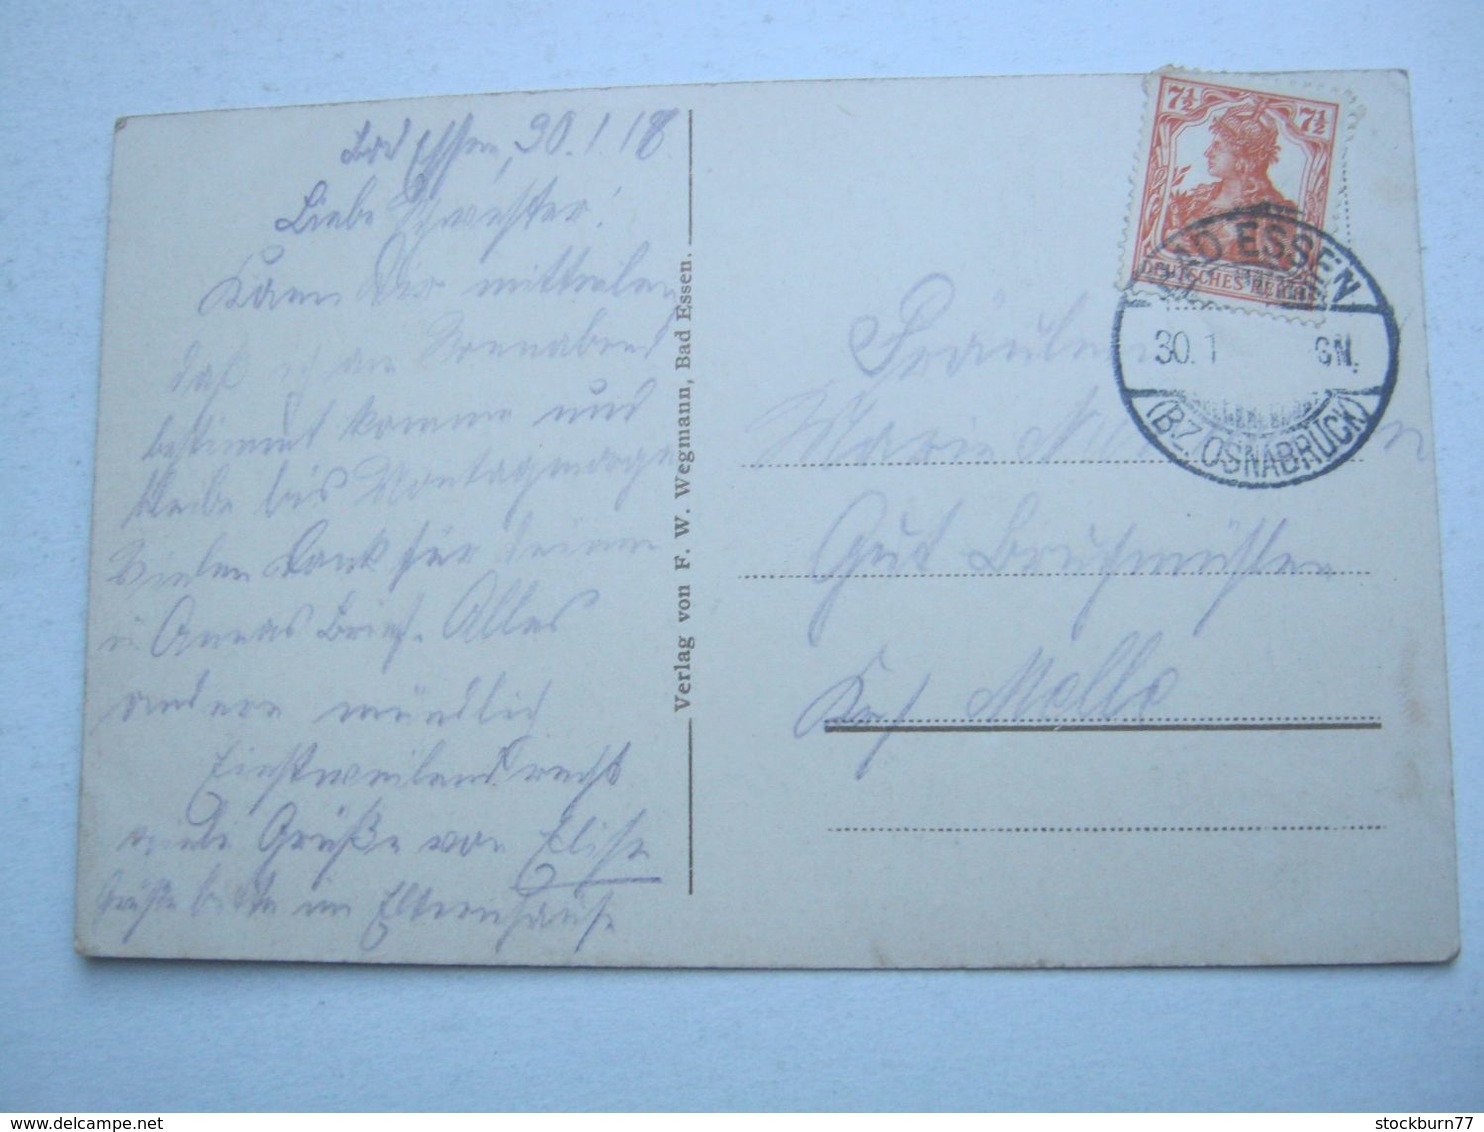 Bad Essen, 30.1.18
Liebe Schwester!
Kann Dir mitteilen
daß ich am Sonnabend
bestimmt komme und
bleibe bis Montagmorgen
Vielen Dank für deinen
u Annas Brief. Alles
andere mündlich
Einstweilen recht
viele Grüße von Elise
Grüße bitte im Elternhause
Verlag von F. W. Wegmann, Bad Essen.
7½ 7½
DEUTSCHES REICH
BAD ESSEN
30. 1
6N.
(BZ. OSNABRÜCK)
Fräulein
Marie
Gut Bruchmühlen
Krs Melle
stockburn77